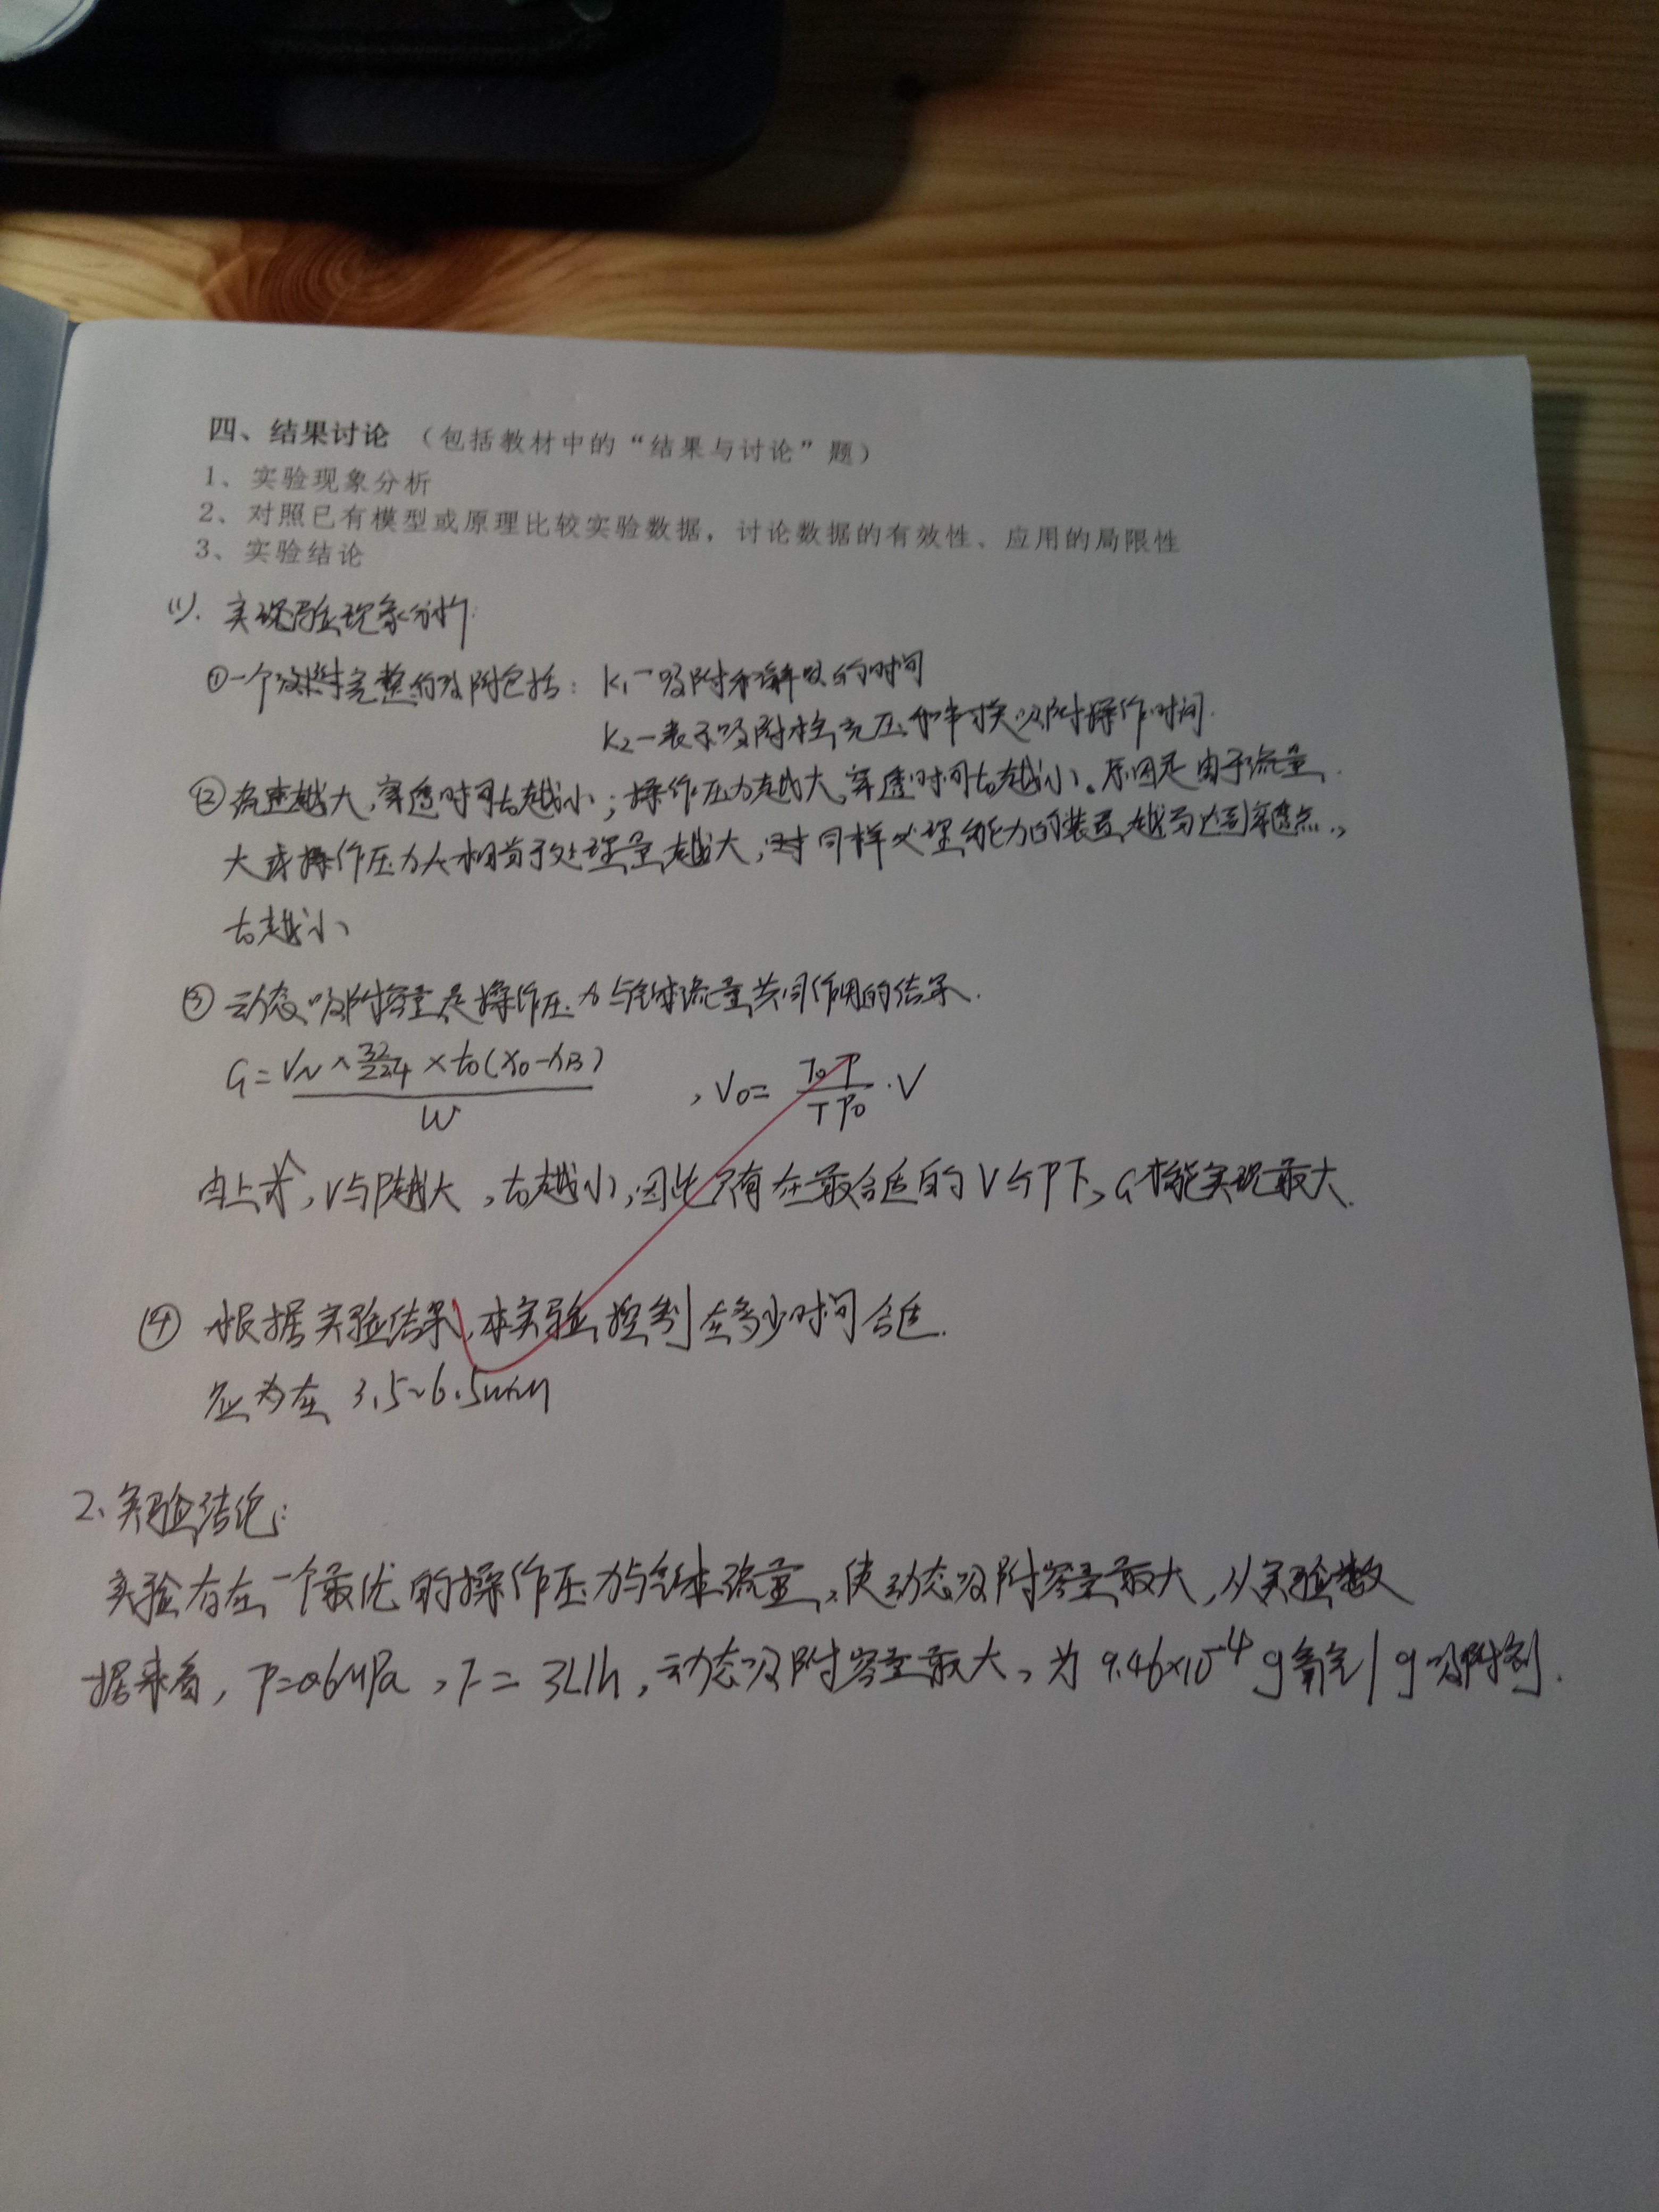 四、结果讨论 （包括教材中的“结果与讨论”题）
1、实验现象分析
2、对照已有模型或原理比较实验数据，讨论数据的有效性、应用的局限性
3、实验结论
(1). 实现验现象分析:
①一个完整的吸附包括: K₁—吸附和解吸的时间
K₂—表示吸附柱充压和串换吸附操作时间.
②流速越大,穿透时间t₀越小;操作压力越大,穿透时间t₀越小。原因是由于流量
大或操作压力大相当于处理量越大,对同样处理能力的装置越易达到穿透点,
t₀越小
③动态吸附容量是操作压力与气体流量共同作用的结果.
G= V_N × 32/22.4 × t₀(y₀-y_B) / W , V₀= T₀P / TP₀ · V
由上式,V与P越大,t₀越小,因此只有在最合适的V与P下,G才能实现最大.
④ 根据实验结果,本实验控制在多少时间合适.
应为在 3.5~6.5min
2、实验结论:
实验存在一个最优的操作压力与气体流量,使动态吸附容量最大,从实验数
据来看,P=0.6MPa,F=3L/h,动态吸附容量最大,为 9.46×10⁻⁴ g氧气/g吸附剂.